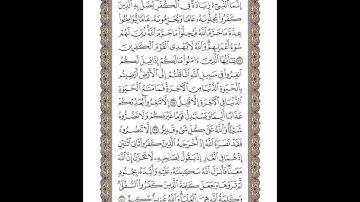 إِنَّمَا ٱلنَّسِىٓءُ زِيَادَةٌ فِى ٱلْكُفْرِ يُضَلُّ بِهِ ٱلَّذِينَ
كَفَرُوا۟ يُحِلُّونَهُۥ عَامًا وَيُحَرِّمُونَهُۥ عَامًا لِّيُوَاطِـُٔوا۟
عِدَّةَ مَا حَرَّمَ ٱللَّهُ فَيُحِلُّوا۟ مَا حَرَّمَ ٱللَّهُ زُيِّنَ لَهُمْ
سُوٓءُ أَعْمَـٰلِهِمْ وَٱللَّهُ لَا يَهْدِى ٱلْقَوْمَ ٱلْكَـٰفِرِينَ
۝٣٧ يَـٰٓأَيُّهَا ٱلَّذِينَ ءَامَنُوا۟ مَا لَكُمْ إِذَا قِيلَ لَكُمُ
ٱنفِرُوا۟ فِى سَبِيلِ ٱللَّهِ ٱثَّاقَلْتُمْ إِلَى ٱلْأَرْضِ أَرَضِيتُم
بِٱلْحَيَوٰةِ ٱلدُّنْيَا مِنَ ٱلْـَٔاخِرَةِ فَمَا مَتَـٰعُ ٱلْحَيَوٰةِ
ٱلدُّنْيَا فِى ٱلْـَٔاخِرَةِ إِلَّا قَلِيلٌ ۝٣٨ إِلَّا تَنفِرُوا۟ يُعَذِّبْكُمْ
عَذَابًا أَلِيمًا وَيَسْتَبْدِلْ قَوْمًا غَيْرَكُمْ وَلَا تَضُرُّوهُ
شَيْـًٔا وَٱللَّهُ عَلَىٰ كُلِّ شَىْءٍ قَدِيرٌ ۝٣٩ إِلَّا تَنصُرُوهُ
فَقَدْ نَصَرَهُ ٱللَّهُ إِذْ أَخْرَجَهُ ٱلَّذِينَ كَفَرُوا۟ ثَانِىَ ٱثْنَيْنِ
إِذْ هُمَا فِى ٱلْغَارِ إِذْ يَقُولُ لِصَـٰحِبِهِۦ لَا تَحْزَنْ إِنَّ ٱللَّهَ
مَعَنَا فَأَنزَلَ ٱللَّهُ سَكِينَتَهُۥ عَلَيْهِ وَأَيَّدَهُۥ بِجُنُودٍ
لَّمْ تَرَوْهَا وَجَعَلَ كَلِمَةَ ٱلَّذِينَ كَفَرُوا۟ ٱلسُّفْلَىٰ
وَكَلِمَةُ ٱللَّهِ هِىَ ٱلْعُلْيَا وَٱللَّهُ عَزِيزٌ حَكِيمٌ ۝٤٠